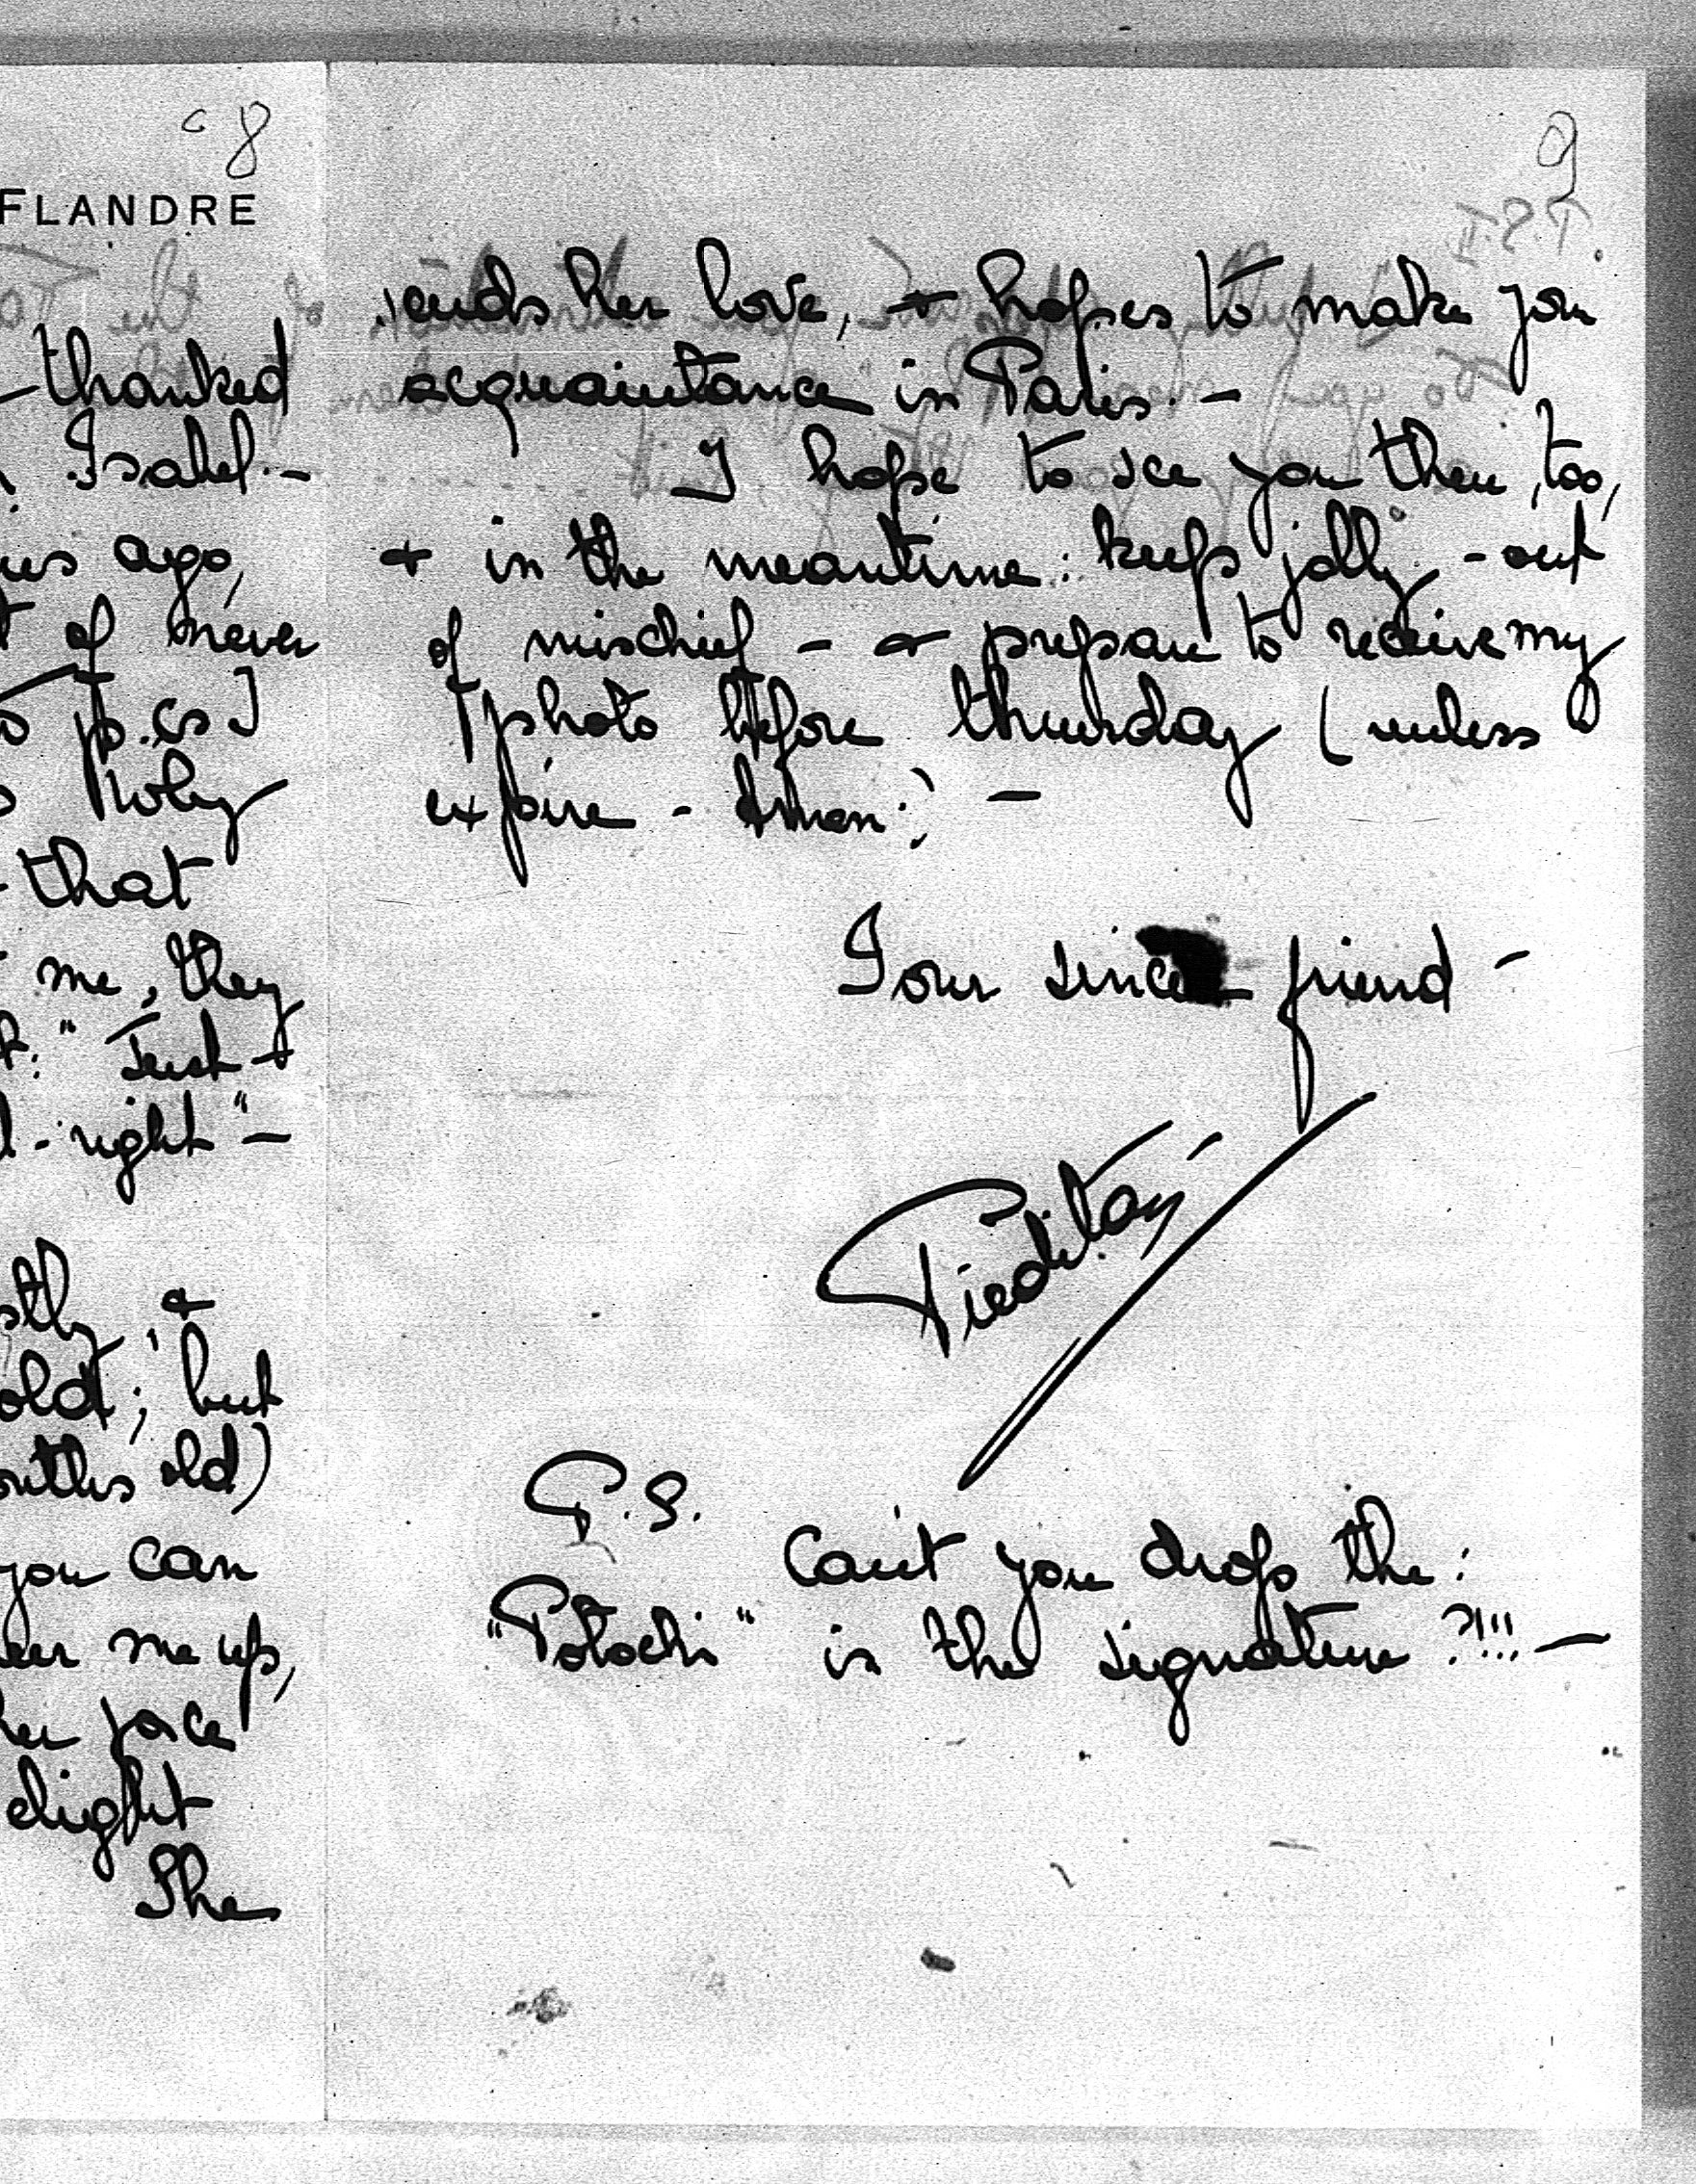 8
FLANDRE
thanked
Isabel. -
ago,
of never
p.cs]
that
me, they
"Just
right" -
&
old; but
old)
you can
me up,
her
She
9
sends her love, & hopes to make your
acquaintance in Paris. -
I hope to see you then, too,
& in the meantime: keep jolly, - out
of mischief - & prepare to receive my
photo before thursday (unless
expire - Amen.) -
Your sincere friend -
Piedita -
P.S.
Can't you drop the:
"Potocki" in the signature?!!! -